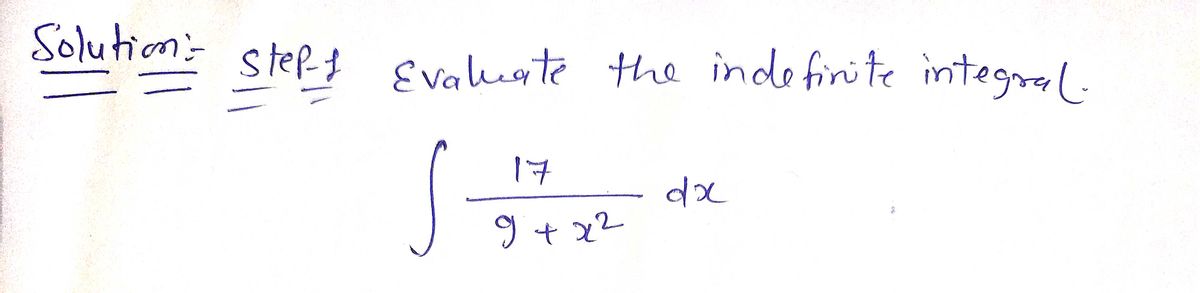 Solution:- Step-1 Evaluate the indefinite integral.
∫ 17 / (9 + x²) dx